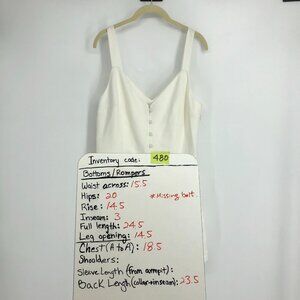 Inventory code: 480
Bottoms/Rompers
Waist across: 15.5
Hips: 20
*Missing belt.
Rise: 14.5
Inseam: 3
Full length: 24.5
Leg opening: 14.5
Chest (A to A): 18.5
Shoulders:
Sleeve Length (from armpit):
Back Length (collar→inseam): 23.5